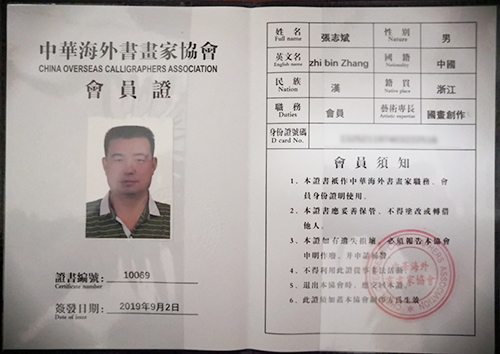 中華海外書畫家協會
CHINA OVERSEAS CALLIGRAPHERS ASSOCIATION
會員證
證書編號: 10069
Certificate number
簽發日期: 2019年9月2日
Date of issue
姓名 張志斌 性别 男
Full name Nature
英文名 zhi bin Zhang 國籍 中國
English name Nationality
民族 漢 籍貫 浙江
Nation Native place
職務 會員 藝術專長 國畫創作
Duties Artistic expertise
身份證號碼
D card No.
會員須知
1、本證書衹作中華海外書畫家職務、會
員身份證明使用。
2、本證書應妥善保管，不得塗改或轉借
他人。
3、本證如有遺失損壞，必須報告本協會
申明作廢，并申請補發。
4、不得利用此證從事非法活動。
5、退出本協會時，應交回本證。
6、此證須加蓋本協會鋼印方爲生效
中華海外
書畫家協會